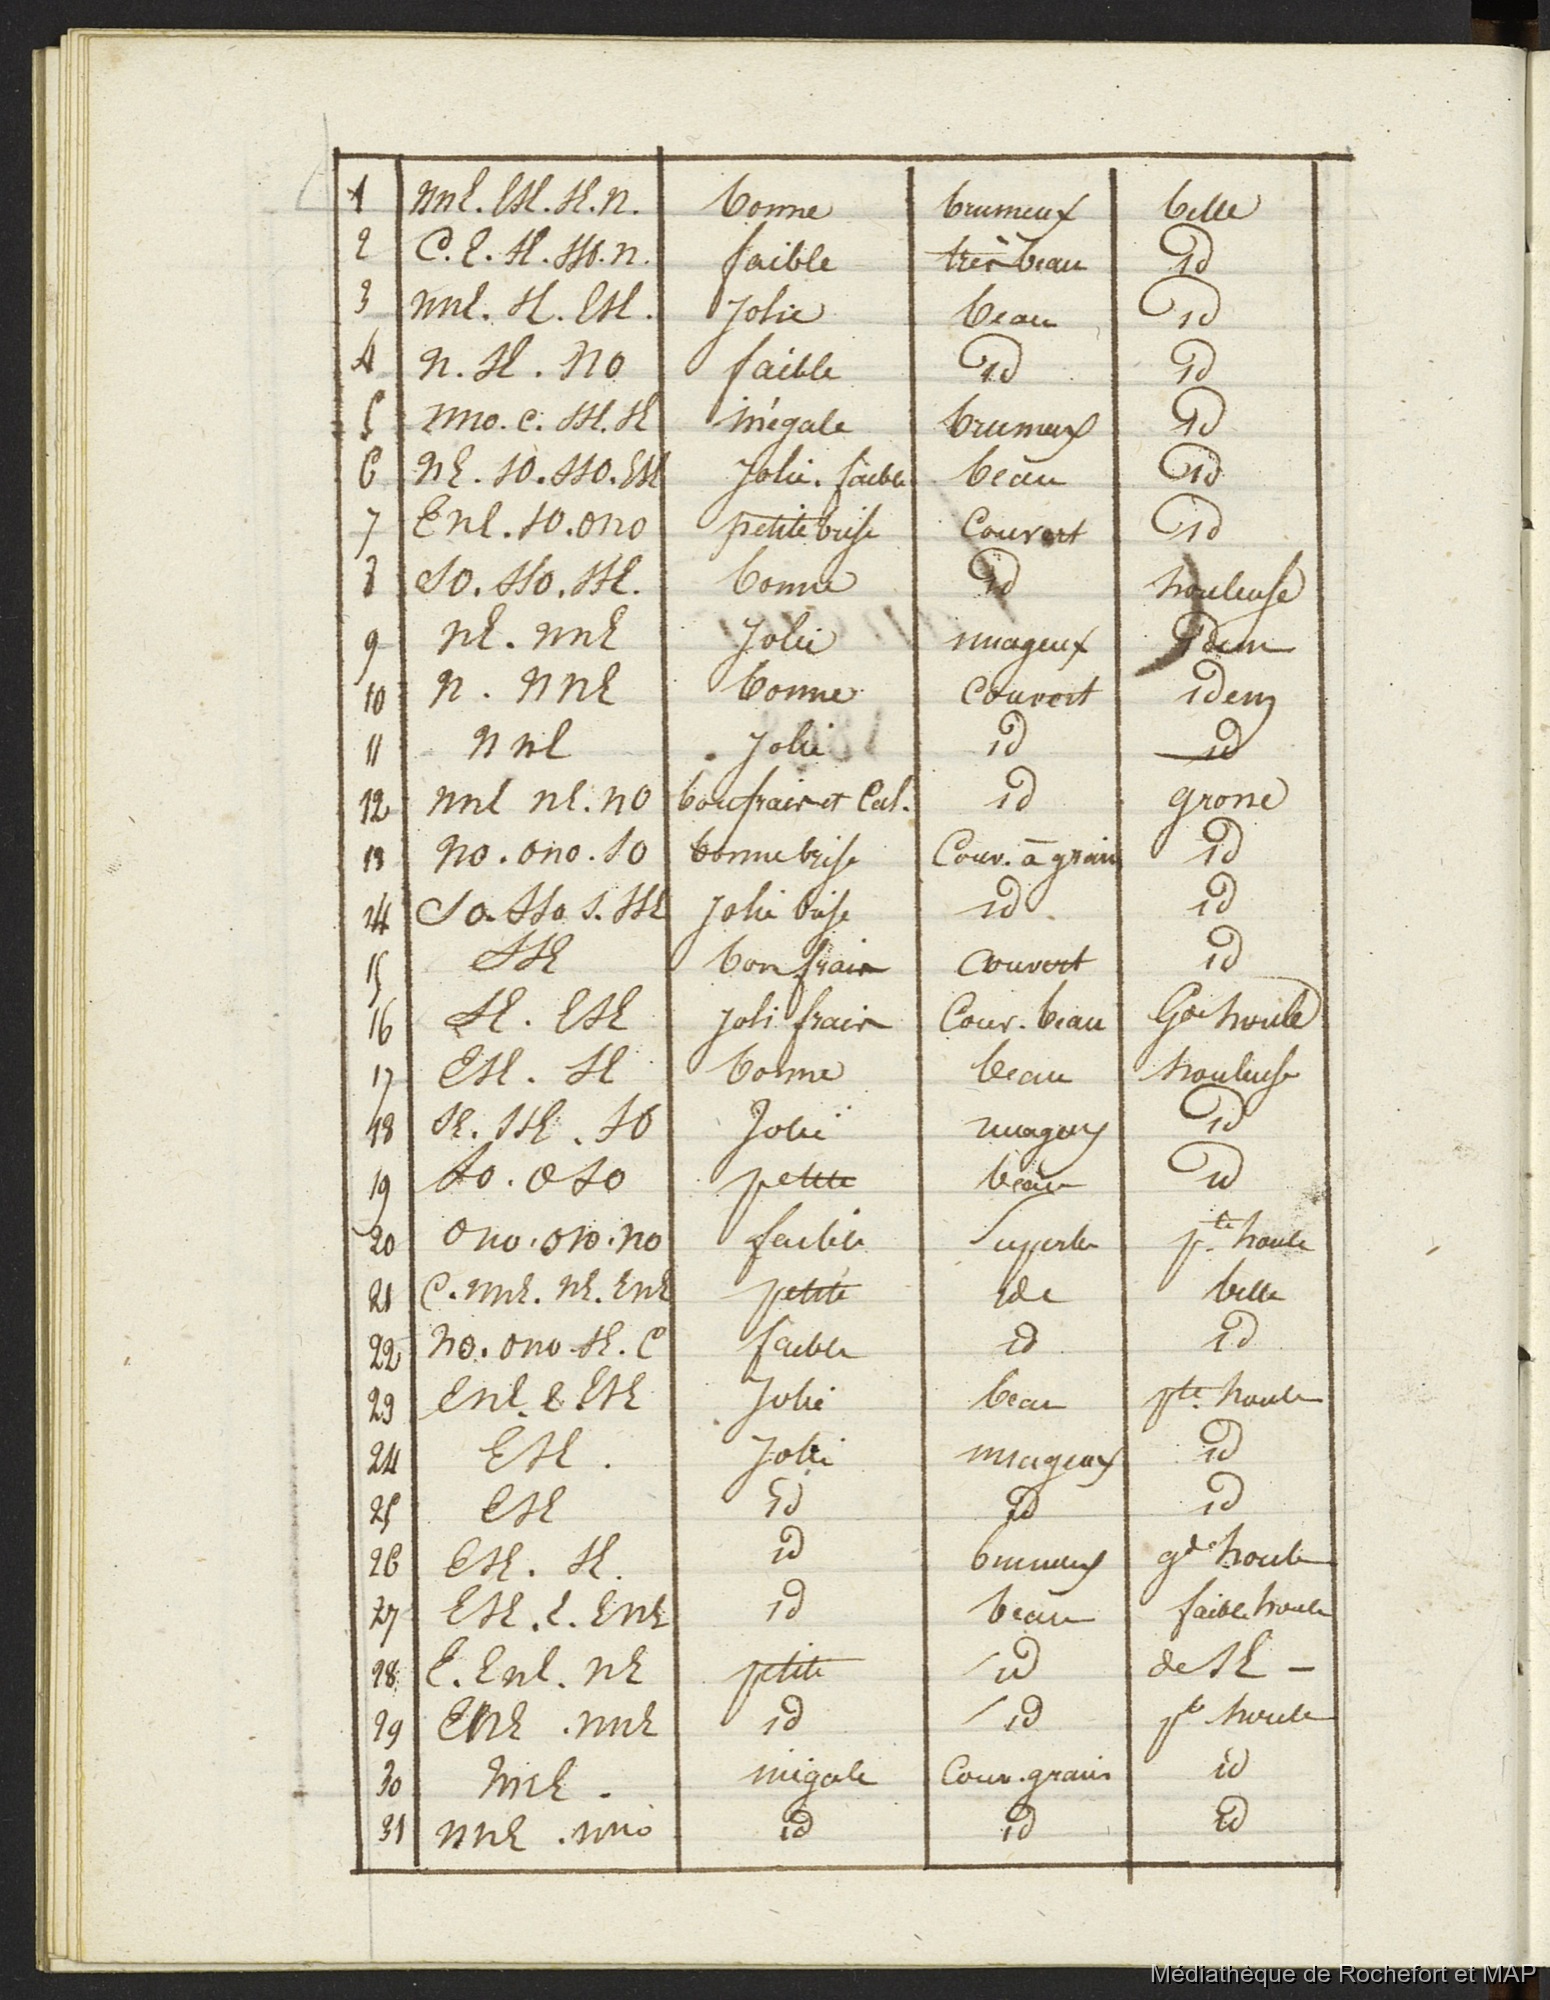 1 NNE. ESE. SE. N. bonne brumeux belle
2 C. E. SE. SSO. N. faible très beau id
3 NNE. SE. ESE. Jolie beau id
4 N. SE. NO faible id id
5 NNO. C. SSE. SE inégale brumeux id
6 NE. SO. SSO. ESE Jolie. faible beau id
7 ENE. SO. ONO petite brise Couvert id
8 SO. SSO. SSE. bonne id houleuse
9 NE. NNE Jolie nuageux idem
10 N. NNE bonne Couvert idem
11 NNE Jolie id id
12 NNE NE. NO bon frais et Cal. id grosse
13 NO. ONO. SO bonne brise Couv. à grain id
14 SO. SSO S. SSE Jolie brise id id
15 SSE bon frais couvert id
16 SE. ESE Joli frais Couv. beau Gde houle
17 ESE. SE bonne beau houleuse
18 SE. SSE. SO Jolie nuageux id
19 SO. OSO petite beau id
20 ONO. ONO. NO faible Superbe pte houle
21 C. NNE. NE. ENE petite ide belle
22 NO. ONO. SE. C faible id id
23 ENE. E. ESE Jolie beau pte houle
24 ESE. Jolie nuageux id
25 ESE id id id
26 ESE. SE. id brumeux gde houle
27 ESE. E. ENE id beau faible houle
28 E. ENE. NE petite id de SE –
29 ENE. NNE id id pte houle
30 NNE. inégale Couv. grains id
31 NNE. NNO id id id
Médiathèque de Rochefort et MAP